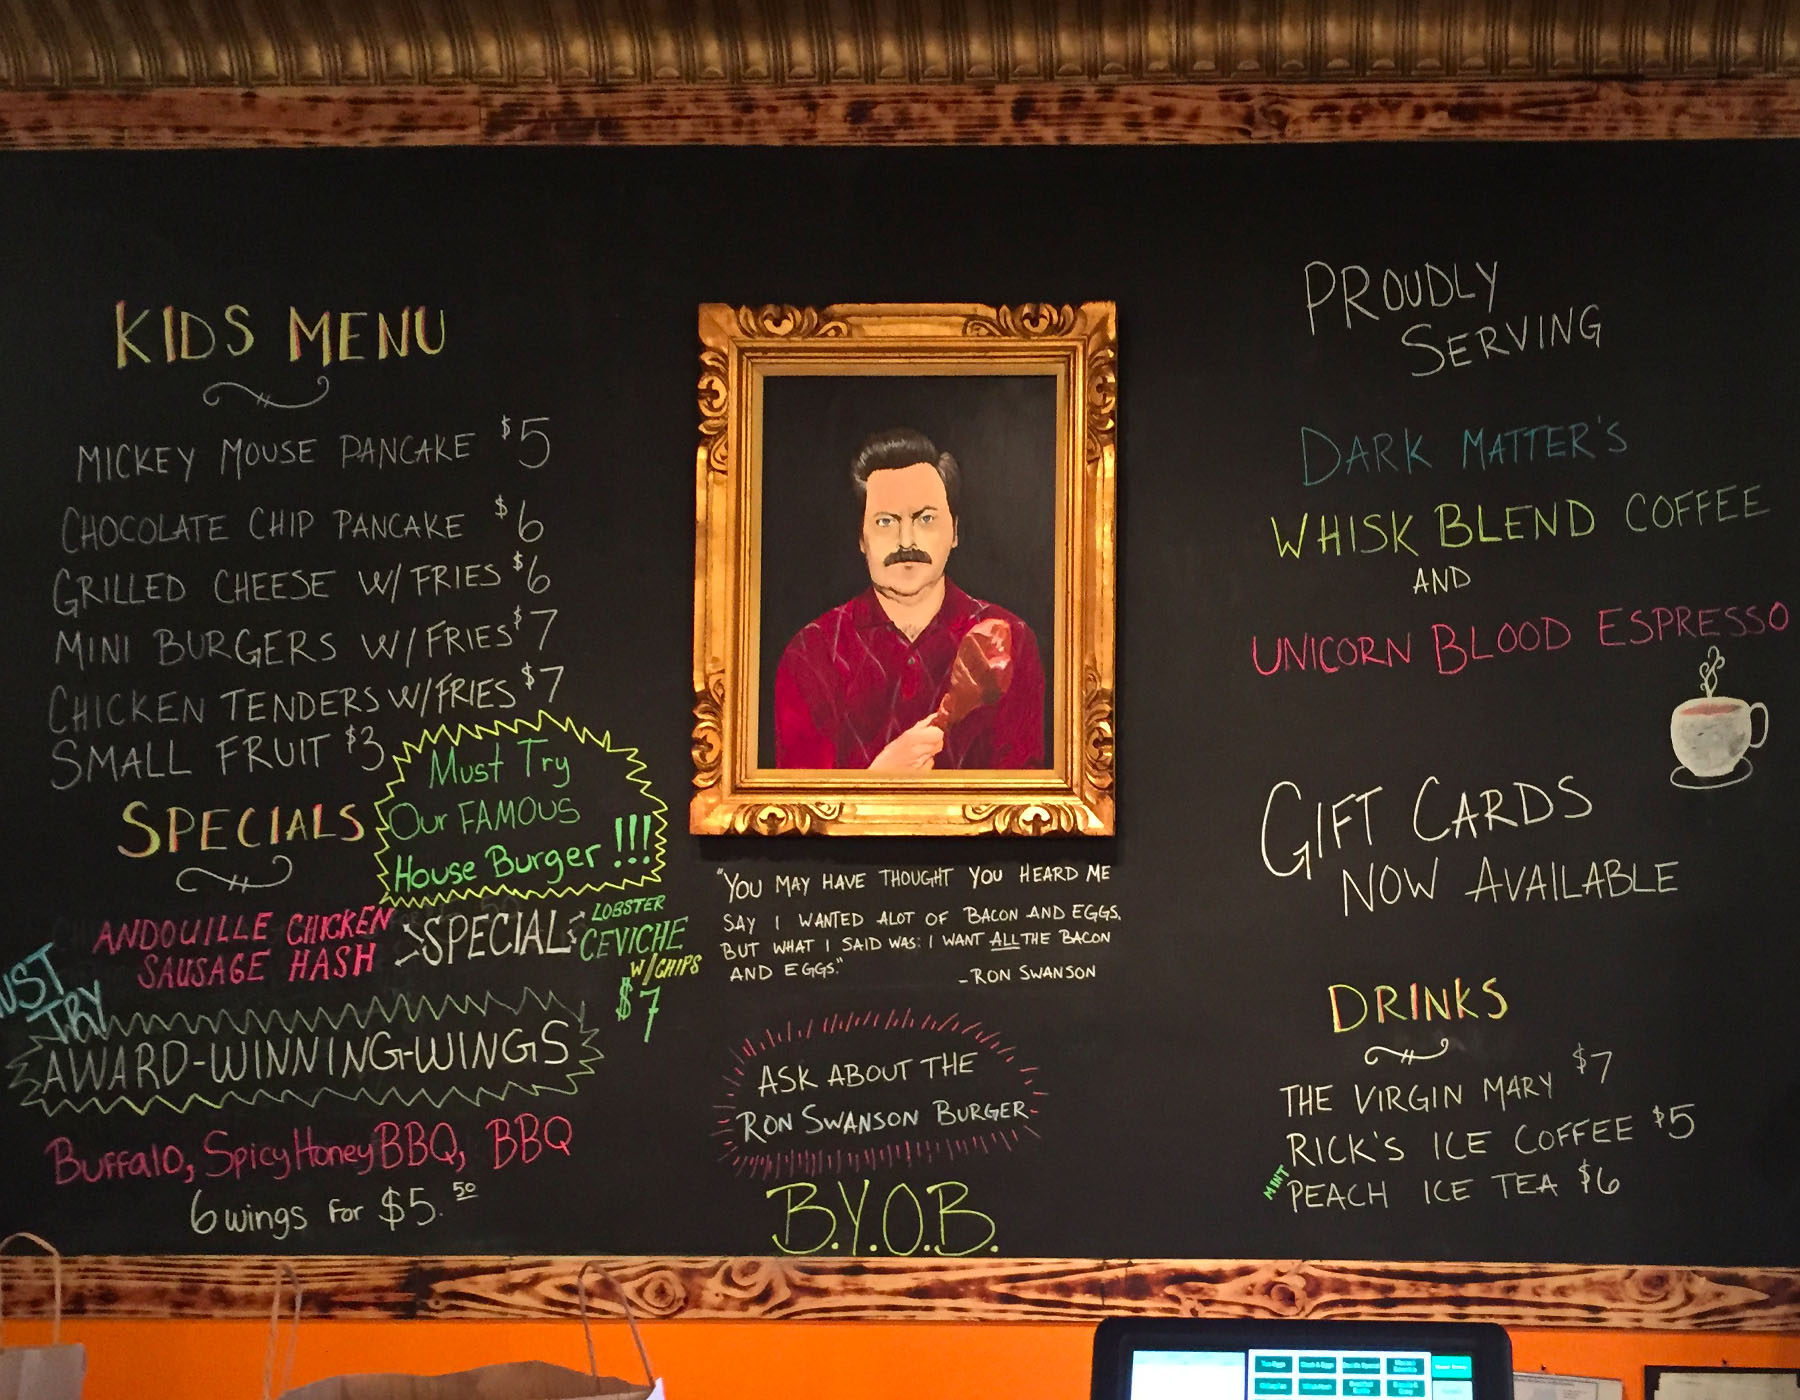 KIDS MENU
MICKEY MOUSE PANCAKE $5
CHOCOLATE CHIP PANCAKE $6
GRILLED CHEESE W/ FRIES $6
MINI BURGERS W/ FRIES $7
CHICKEN TENDERS W/ FRIES $7
SMALL FRUIT $3
Must Try
Our FAMOUS
House Burger !!!
SPECIALS
ANDOUILLE CHICKEN
SAUSAGE HASH
SPECIAL
LOBSTER
CEVICHE
W/CHIPS
$7
UST
TRY
AWARD-WINNING-WINGS
Buffalo, Spicy Honey BBQ, BBQ
6 wings for $5.50
"YOU MAY HAVE THOUGHT YOU HEARD ME
SAY I WANTED ALOT OF BACON AND EGGS,
BUT WHAT I SAID WAS: I WANT ALL THE BACON
AND EGGS."
-RON SWANSON
ASK ABOUT THE
RON SWANSON BURGER
B.Y.O.B.
PROUDLY
SERVING
DARK MATTER'S
WHISK BLEND COFFEE
AND
UNICORN BLOOD ESPRESSO
GIFT CARDS
NOW AVAILABLE
DRINKS
THE VIRGIN MARY $7
RICK'S ICE COFFEE $5
MINT PEACH ICE TEA $6